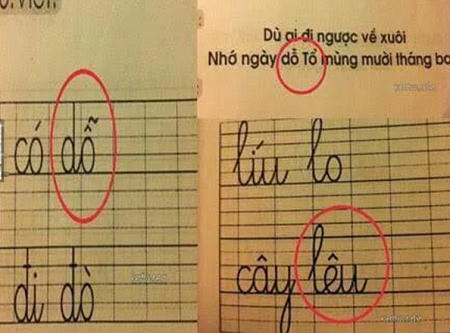 có dỗ
đi đò
Dù ai đi ngược về xuôi
Nhớ ngày dỗ Tổ mùng mười tháng ba
líu lo
cây lêu